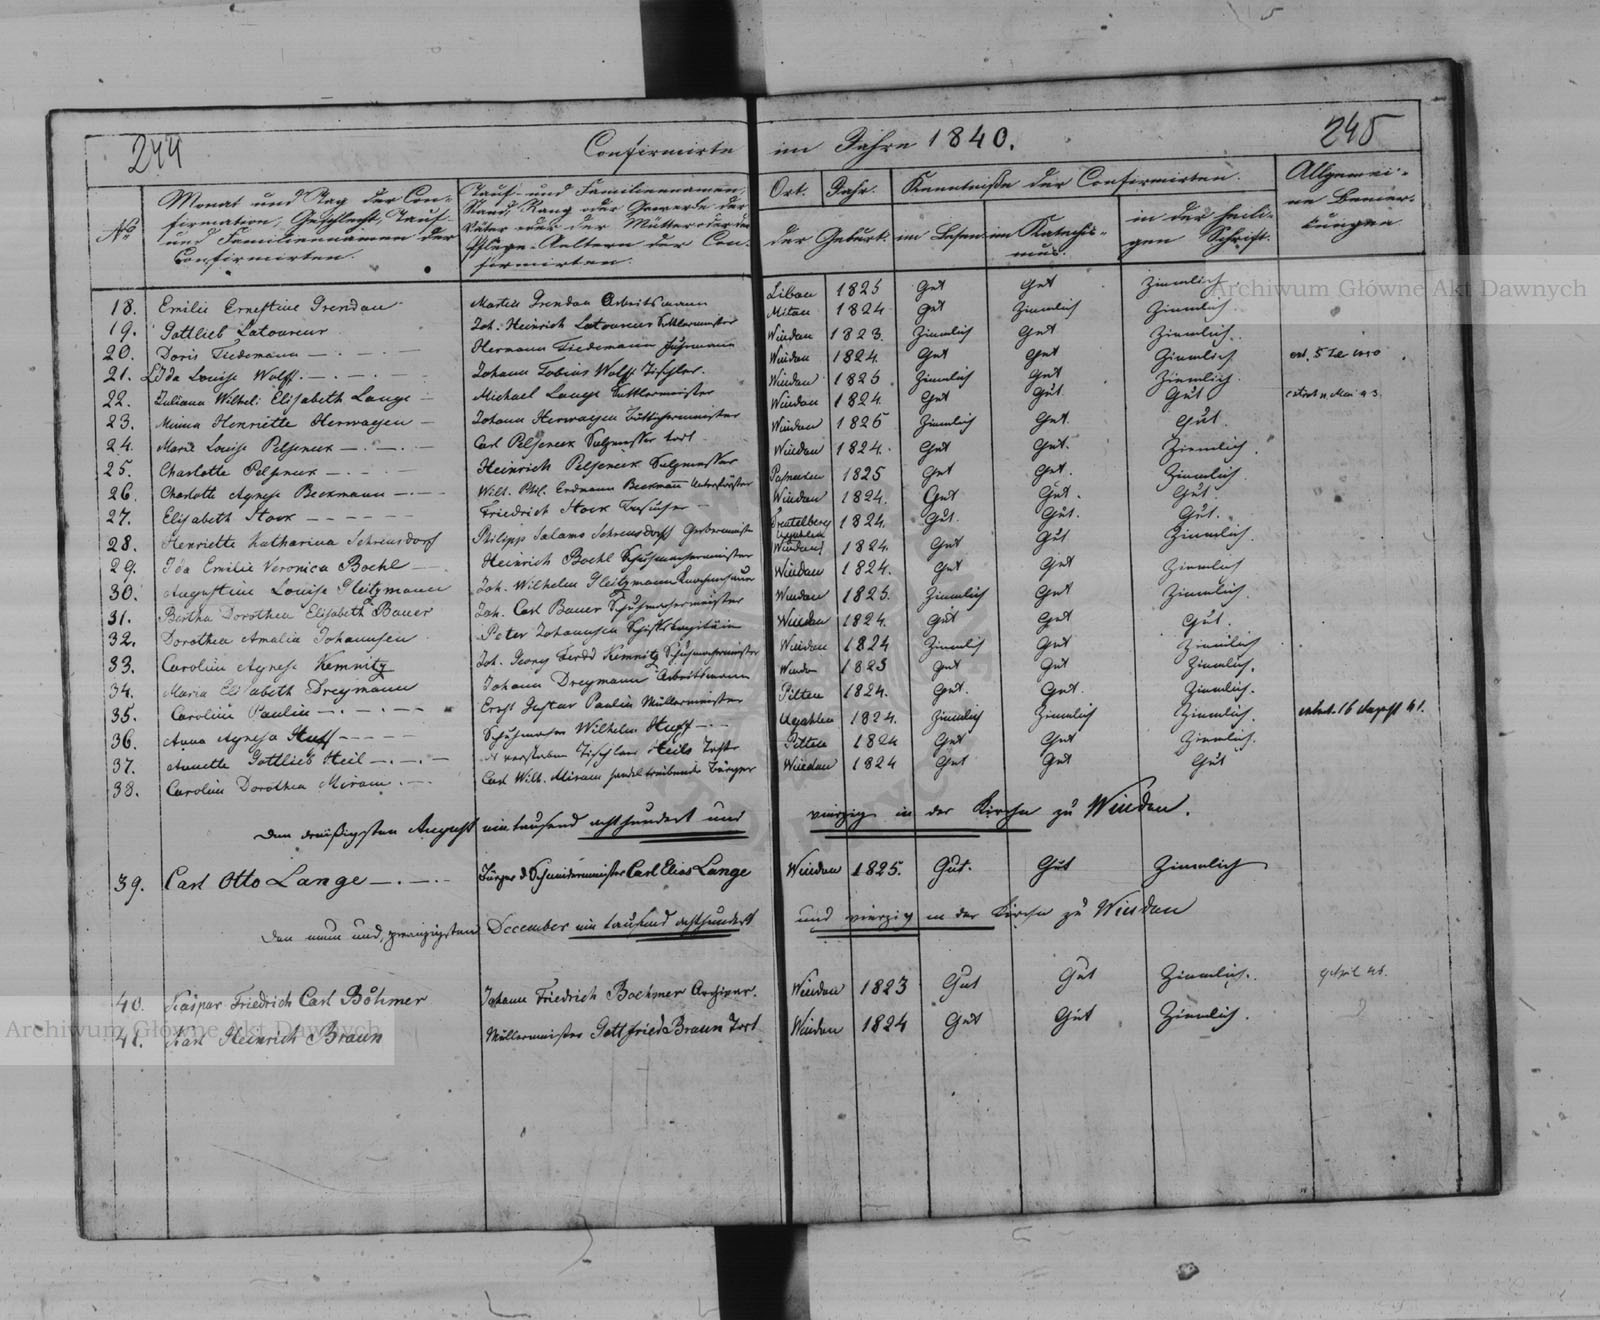 244
Confirmirte im Jahre 1840.
245
No
Monat und Tag der Con-
firmation, Geschlecht, Tauf-
und Familiennamen der
Confirmirten.
Tauf- und Familiennamen,
Stand, Rang oder Gewerbe der
Väter oder der Mütter oder der
Pflege-Aeltern der Con-
firmirten.
Ort. Jahr.
der Geburt.
Kenntniße der Confirmirten.
im Lesen im Katechis-
mus.
in der heili-
gen Schrift.
Allgemei-
ne Bemer-
kungen
18. Emilie Ernestine Grendau Martin Grendau Arbeitsmann Libau 1825 Gut Gut Ziemlich
19. Gottlieb Latoureur Joh. Heinrich Latoureur Sattlermeister Mitau 1824 Gut Ziemlich Ziemlich.
20. Doris Tiedemann Hermann Tiedemann Fuhrmann Windau 1823. Ziemlich Gut Ziemlich.
21. Ida Louise Wolff. Johann Tobias Wolff Tischler. Windau 1824. Gut Gut Ziemlich
22. Juliana Wilhel: Elisabeth Lange Michael Lange Sattlermeister Windau 1825 Ziemlich Gut Ziemlich.
23. Minna Henriette Herwagen Johann Herwagen Böttchermeister Windau 1824. Gut Gut. Gut
24. Marie Louise Pelseneek Carl Pelseneek Salzmesser todt Windau 1826 Ziemlich Gut. Gut.
25. Charlotte Pelseneek Heinrich Pelseneek Salzmesser Windau 1824. Gut Gut. Ziemlich.
26. Charlotte Agnese Beckmann Wilh. Phil. Erdmann Beckmann Unterförster 1825 Gut Gut. Ziemlich.
27. Elisabeth Stock Friedrich Stock Windau 1824. Gut Gut. Gut.
28. Henriette Katharina Schrensdorf Philipp Salamo Schrensdorff Gerbermeister 1824. Gut. Gut. Gut.
29. Ida Emilie Veronica Boehl Heinrich Boehl Schuhmachermeister Windau 1824. Gut Gut Ziemlich.
30. Augustine Louise Gleitzmann Joh. Wilhelm Gleitzmann Windau 1824. Gut Gut Ziemlich
31. Bertha Dorothea Elisabeth Bauer Joh. Carl Bauer Schuhmachermeister Windau 1825. Ziemlich Gut Ziemlich.
32. Dorothea Amalia Johannsen Peter Johannsen Schiffskapitain Windau 1824. Gut Gut Gut.
33. Caroline Agnese Kemnitz Joh. Georg Ferdd Kemnitz Schuhmachermeister Windau 1824 Ziemlich Gut Ziemlich
34. Maria Elisabeth Dreymann Johann Dreymann Arbeitsmann Windau 1823 Gut Gut Ziemlich.
35. Caroline Paulin Ernst Gustav Paulin Müllermeister Pilten 1824. Gut. Gut. Ziemlich.
36. Anna Agnesa Huff Schuhmacher Wilhelm Huff Ugahlen 1824. Ziemlich Ziemlich Ziemlich.
37. Annette Gottlieb Heil verstorben Tischler Heils Tochter Pilten 1824 Gut Gut Ziemlich.
38. Caroline Dorothea Miram Carl Wilh. Miram handeltreibender Bürger Windau 1824 Gut Gut Gut
Den dreißigsten August eintausend achthundert und vierzig in der Kirche zu Windau.
39. Carl Otto Lange Bürger & Schneidermeister Carl Elias Lange Windau 1825. Gut. Gut Ziemlich
Den neun und zwanzigsten December ein tausend achthundert und vierzig in der Kirche zu Windau
40. Kaspar Friedrich Carl Böhmer Johann Friedrich Boehmer Archivar. Windau 1823 Gut Gut Ziemlich.
41. Karl Heinrich Braun Müllermeister Gottfried Braun Todt Windau 1824 Gut Gut Ziemlich.
Archiwum Główne Akt Dawnych
Archiwum Główne Akt Dawnych